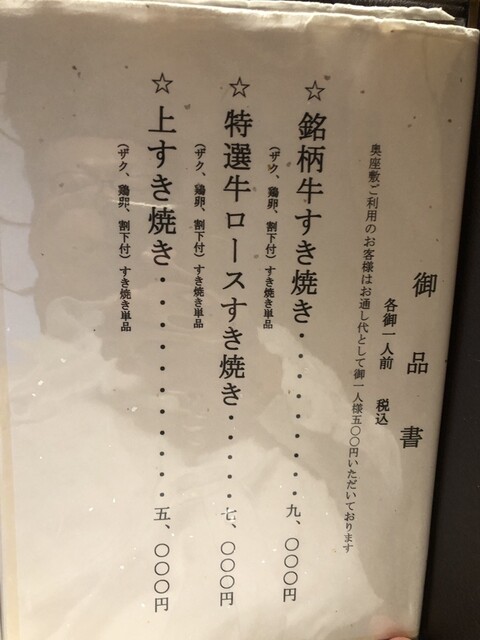 御品書
各御一人前　税込
奥座敷ご利用のお客様はお通し代として御一人様五〇〇円いただいております
☆銘柄牛すき焼き・・・・・・・・・九、〇〇〇円
（ザク、鶏卵、割下付）すき焼き単品
☆特選牛ロースすき焼き・・・・・七、〇〇〇円
（ザク、鶏卵、割下付）すき焼き単品
☆上すき焼き・・・・・・・・・・・・五、〇〇〇円
（ザク、鶏卵、割下付）すき焼き単品